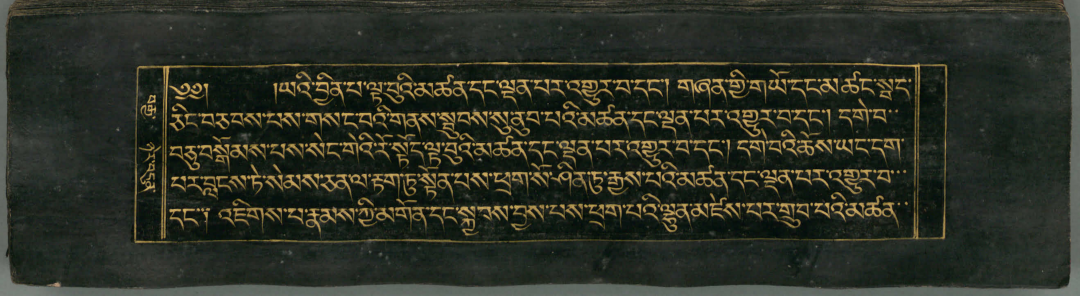 ༄༅། །ཡའི་བྱིན་པ་ལྟ་བུའི་མཚན་དང་ལྡན་པར་འགྱུར་བ་དང་། གཞན་གྱི་ག་ཡོ་དང་མ་ཚང་སྦ་ད་
ཅིང་བཅབས་པས་གསང་བའི་གནས་སྦུབས་སུ་ནུབ་པའི་མཚན་དང་ལྡན་པར་འགྱུར་བ་དང་། དགེ་བ་
བཅུ་བསྒོམས་པས་སེང་གེའི་རོ་སྟོད་ལྟ་བུའི་མཚན་དང་ལྡན་པར་འགྱུར་བ་དང་། དགེ་བའི་ཆོས་ཡང་དག་
པར་བླངས་ཏེ་སེམས་ཅན་ལ་རྟག་ཏུ་སྟོན་པས་ཕྲག་སོ་ཤིན་ཏུ་རྒྱས་པའི་མཚན་དང་ལྡན་པར་འགྱུར་བ་
དང་། འཇིགས་པ་རྣམས་ཀྱི་མགོན་དང་སྐྱབས་བྱས་པས་ཕྲག་པའི་ལྷུན་མཛེས་པར་གྲུབ་པའི་མཚན་